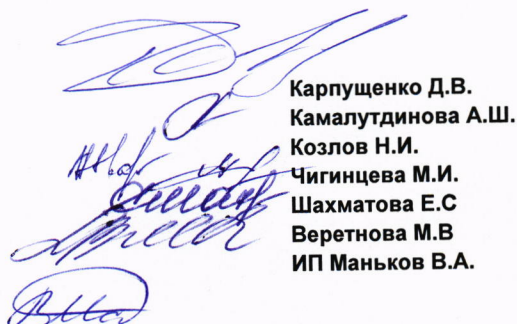 Карпущенко Д.В.
Камалутдинова А.Ш.
Козлов Н.И.
Чигинцева М.И.
Шахматова Е.С
Веретнова М.В
ИП Маньков В.А.